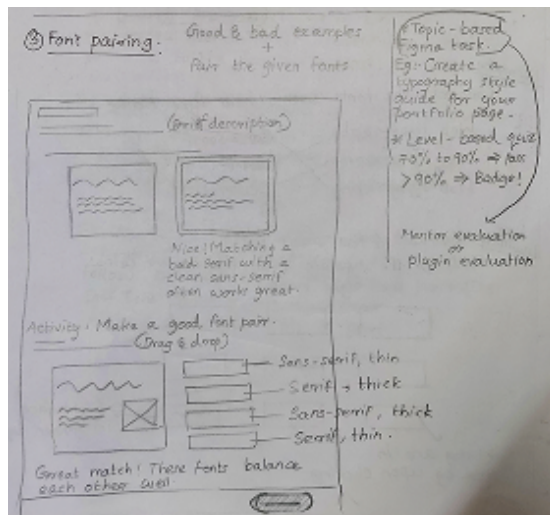 ③ Font pairing:
Good & bad examples
+
Pair the given fonts
(Brief description)
Nice! Matching a
bold serif with a
clean sans-serif
often works great.
Activity: Make a good font pair.
(Drag & drop)
Sans-serif, thin
Serif, thick
Sans-serif, thick
Serif, thin.
Great match! These fonts balance
each other well
* Topic-based
Figma task.
Eg:- Create a
typography style
guide for your
portfolio page.
* Level-based quiz
70% to 90% ⇒ pass
>90% ⇒ Badge!
Mentor evaluation
or
plugin evaluation